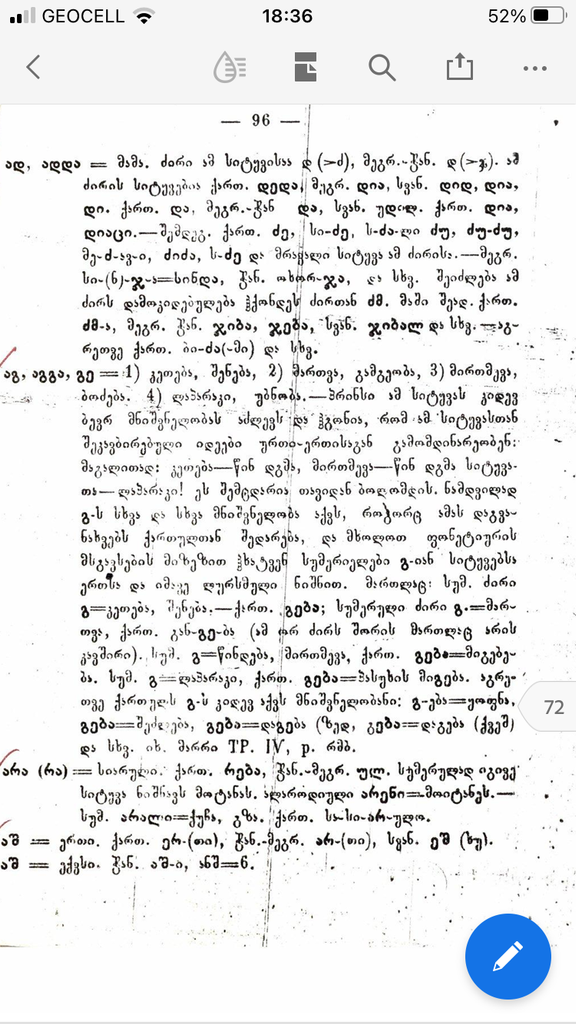 GEOCELL 18:36 52%
— 96 —
ად, ადდა = მამა. ძირი ამ სიტყვისაა დ (>ძ), მეგრ.-ჭან. დ (>ჯ). ამ
ძირის სიტყვებია ქართ. დედა, მეგრ. დია, სვან. დიდ, დია,
დი. ქართ. და, მეგრ.-ჭან და, სვან. უდილ. ქართ. დია,
დიაცი.—შემდეგ. ქართ. ძე, სი-ძე, ს-ძა-ლი ძუ, ძუ-ძუ,
მე-ძ-ავ-ი, ძიძა, ს-ძე და მრავალი სიტყვა ამ ძირისა.—მეგრ.
სი-(ნ)-ჯ-ა=სინდა, ჭან. ოხორ-ჯა, და სხვ. შეიძლება ამ
ძირს დამოკიდებულება ჰქონდეს ძირთან ძმ. მაში შეად. ქართ.
ძმ-ა, მეგრ. ჭან. ჯიბა, ჯება, სვან. ჯიბალ და სხვ.—აგ-
რეთვე ქართ. ბი-ძა(-მი) და სხვ.
აგ, აგგა, გე = 1) კეთება, შენება, 2) მართვა, გამგეობა, 3) მირთმევა,
ბოძება. 4) ლაპარაკი, უბნობა.—პრინსი ამ სიტყვას კიდევ
ბევრ მნიშვნელობას აძლევს და ჰგონია, რომ ამ სიტყვასთან
შეკავბირებული იდეები ურთი-ერთისაგან გამომდინარეობენ:
მაგალითად: კეთება—წინ დგმა, მირთმევა—წინ დგმა სიტყვა-
თა—ლაპარაკი! ეს შემცდარია თავიდან ბოლომდის. ნამდვილად
გ-ს სხვა და სხვა მნიშვნელობა აქვს, როგორც ამას დაგვა-
ნახვებს ქართულთან შედარება, და მხოლოთ ფონეტიურის
მსგავსების მიზეზით ჰხატვენ სუმერიელები გ-იან სიტყვებსა
ერთსა და იმავე ლურსმული ნიშნით. მართლაც: სუმ. ძირი
გ=კეთება, შენება.—ქართ. გება; სუმერული ძირი გ.=მარ-
თვა, ქართ. გან-გე-ბა (ამ ორ ძირს შორის მართლაც არის
კავშირი). სუმ. გ=წინდება, მირთმევა, ქართ. გება=მიგებე-
ბა. სუმ. გ=ლაპარაკი, ქართ. გება=პასუხის მიგება. აგრე-
თვე ქართულს გ-ს კიდევ აქვს მნიშვნელობანი: გ-ება=ყოფნა,
გება=შეძლება, გება=დაგება (ზედ, გება=დაგება (ქვეშ)
და სხვ. იხ. მარრი TP. IV, p. რმბ.
72
არა (რა) = სიარული. ქართ. რება, ჭან.-მეგრ. ულ. სუმერულად იგივე
სიტყვა ნიშნავს მოტანას. ალაროდიული არენი=მოიტანეს.—
სუმ. არალი=ქუჩა, გზა. ქართ. სა-სი-არ-ულო.
აშ = ერთი. ქართ. ერ-(თი), ჭან.-მეგრ. არ-(თი), სვან. ეშ (ხუ).
აშ = ექვსი. ჭან. აშ-ი, ანშ=6.